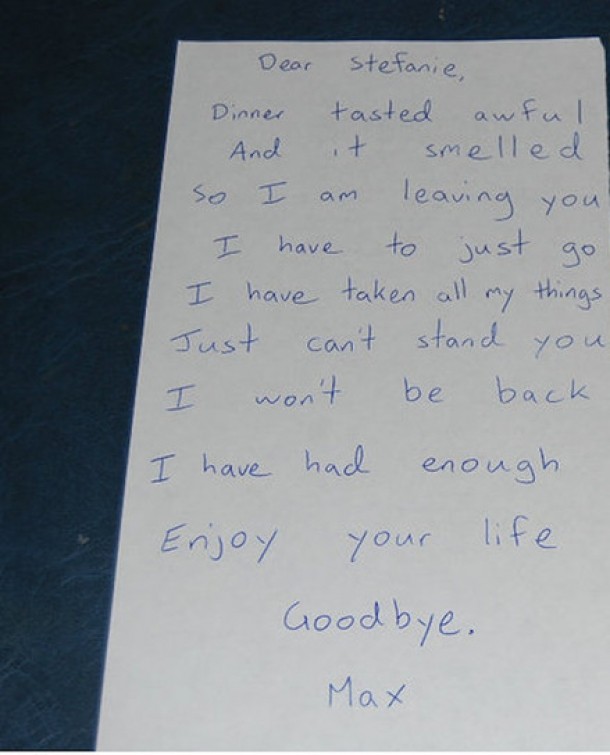 Dear Stefanie,
Dinner tasted awful
And it smelled
So I am leaving you
I have to just go
I have taken all my things
Just can't stand you
I won't be back
I have had enough
Enjoy your life
Goodbye.
Max